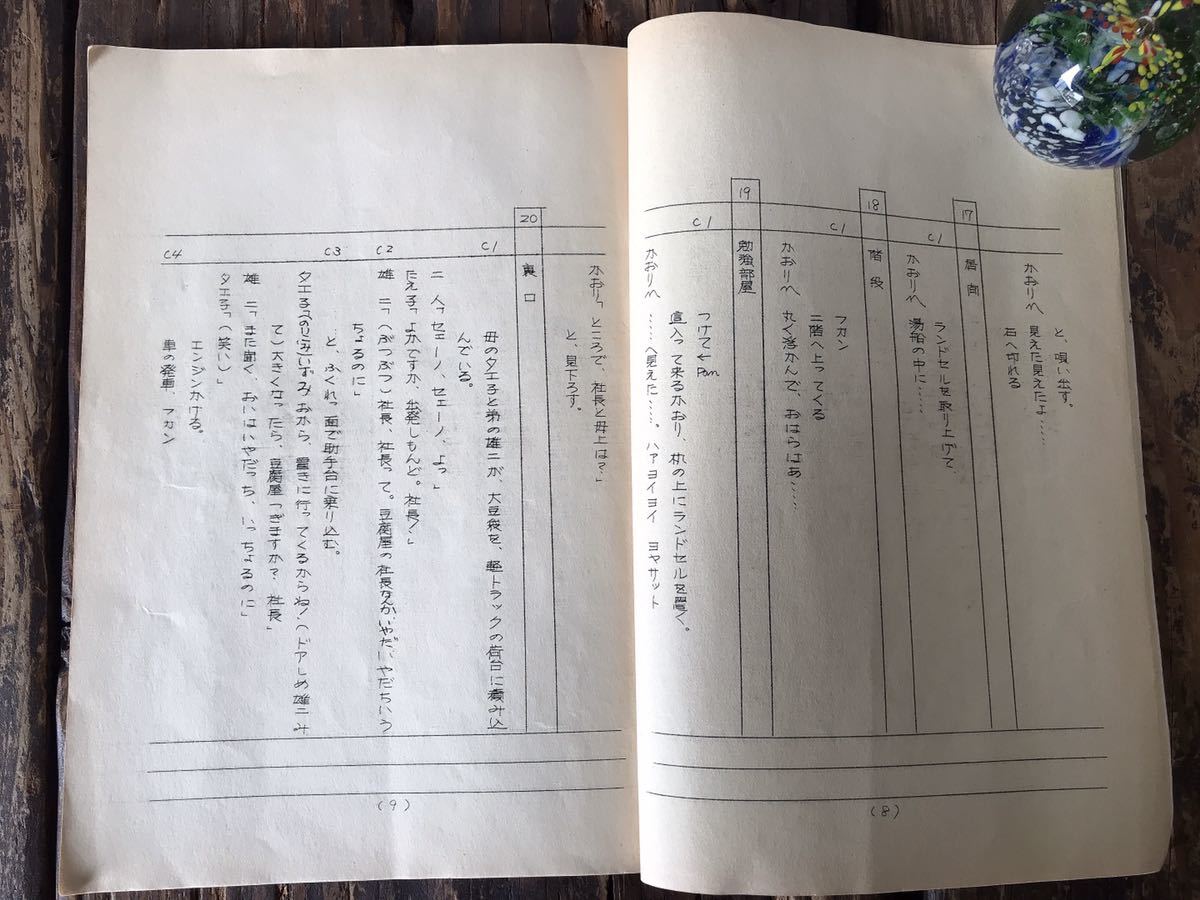 と、唄い出す。
かおりM 見えた見えたよ……
右へ切れる
17 居間
C1
ランドセルを取り上げて
かおりM 湯船の中に……
18 階段
C1
フカン
二階へ上ってくる
かおりM 丸く浮かんで、おはらはあ……
19 勉強部屋
C1
つけて← Pan
這入って来るかおり、机の上にランドセルを置く。
かおりM ……へ見えた……。ハァヨイヨイ ヨヤサット
(8)
かおり「ところで、社長と母上は?」
と、見下ろす。
20 裏口
C1
母の夕エ子と弟の雄二が、大豆袋を、軽トラックの荷台に積み込
んでいる。
二 人「セェーノ、セェーノ、よっ」
たえ子「よかですか、出発しもんど。社長!」
C2
雄 二「(ぶつぶつ)社長、社長って。豆腐屋の社長なんか、いやだ、いやだちいう
ちょるのに」
C3
と、ふくれっ面で助手台に乗り込む。
夕エ子「(のりこみ)いずみ おから、置きに行ってくるからね!(ドアしめ雄二み
て)大きくなったら、豆腐屋つぎますか? 社長」
雄 二「また聞く、おいはいやだっち、いっちょるのに」
夕エ子「(笑い)」
エンジンかける。
C4
車の発車、フカン
(9)